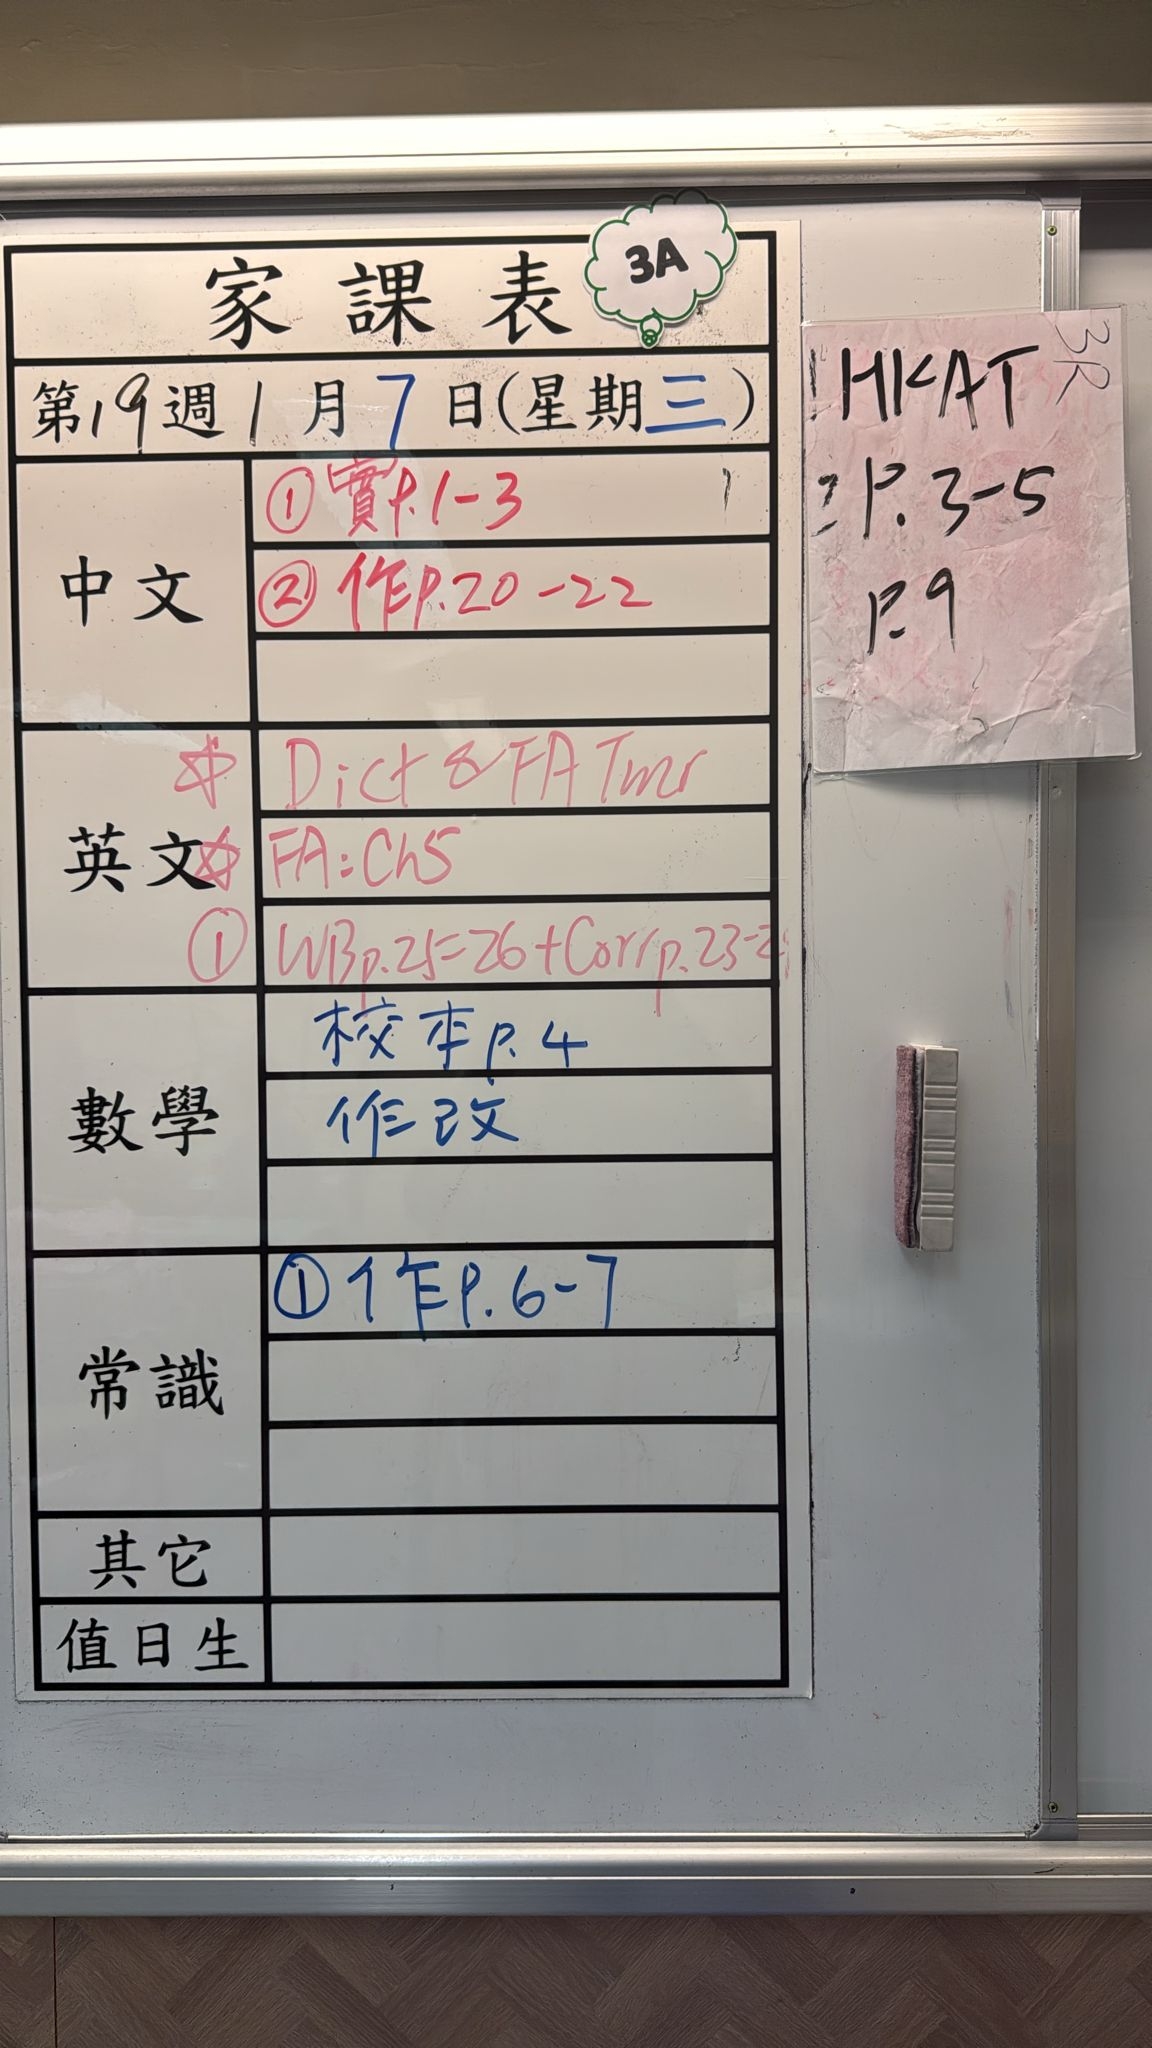 家課表
3A
第19週1月7日(星期三)
中文
① 實P.1-3
② 作P.20-22
英文
☆ Dict & FA Tmr
☆ FA: Ch5
① WB p.25-26 + Corr p.23-2
數學
校本P.4
作改
常識
① 作P.6-7
其它
值日生
3R
HKAT
P. 3-5
P.9